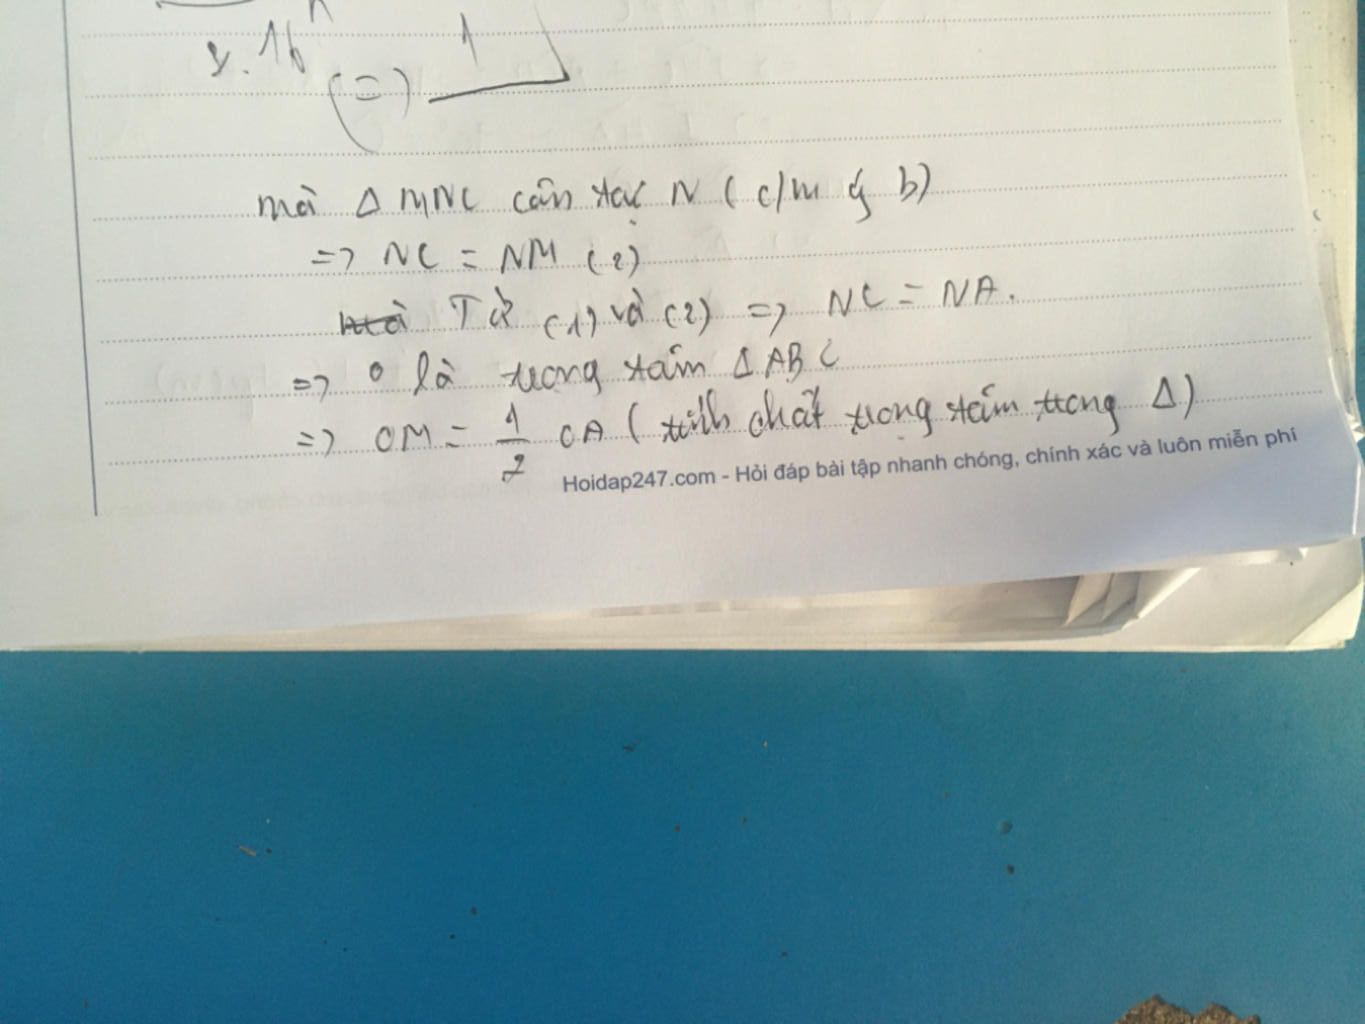 (=) 1
mà Δ MNC cân tại N ( c/m ý b)
=> NC = NM (2)
Từ (1) và (2) => NC = NA.
=> O là trọng tâm Δ ABC
=> OM = 1/2 OA ( tính chất trọng tâm trong Δ)
Hoidap247.com - Hỏi đáp bài tập nhanh chóng, chính xác và luôn miễn phí